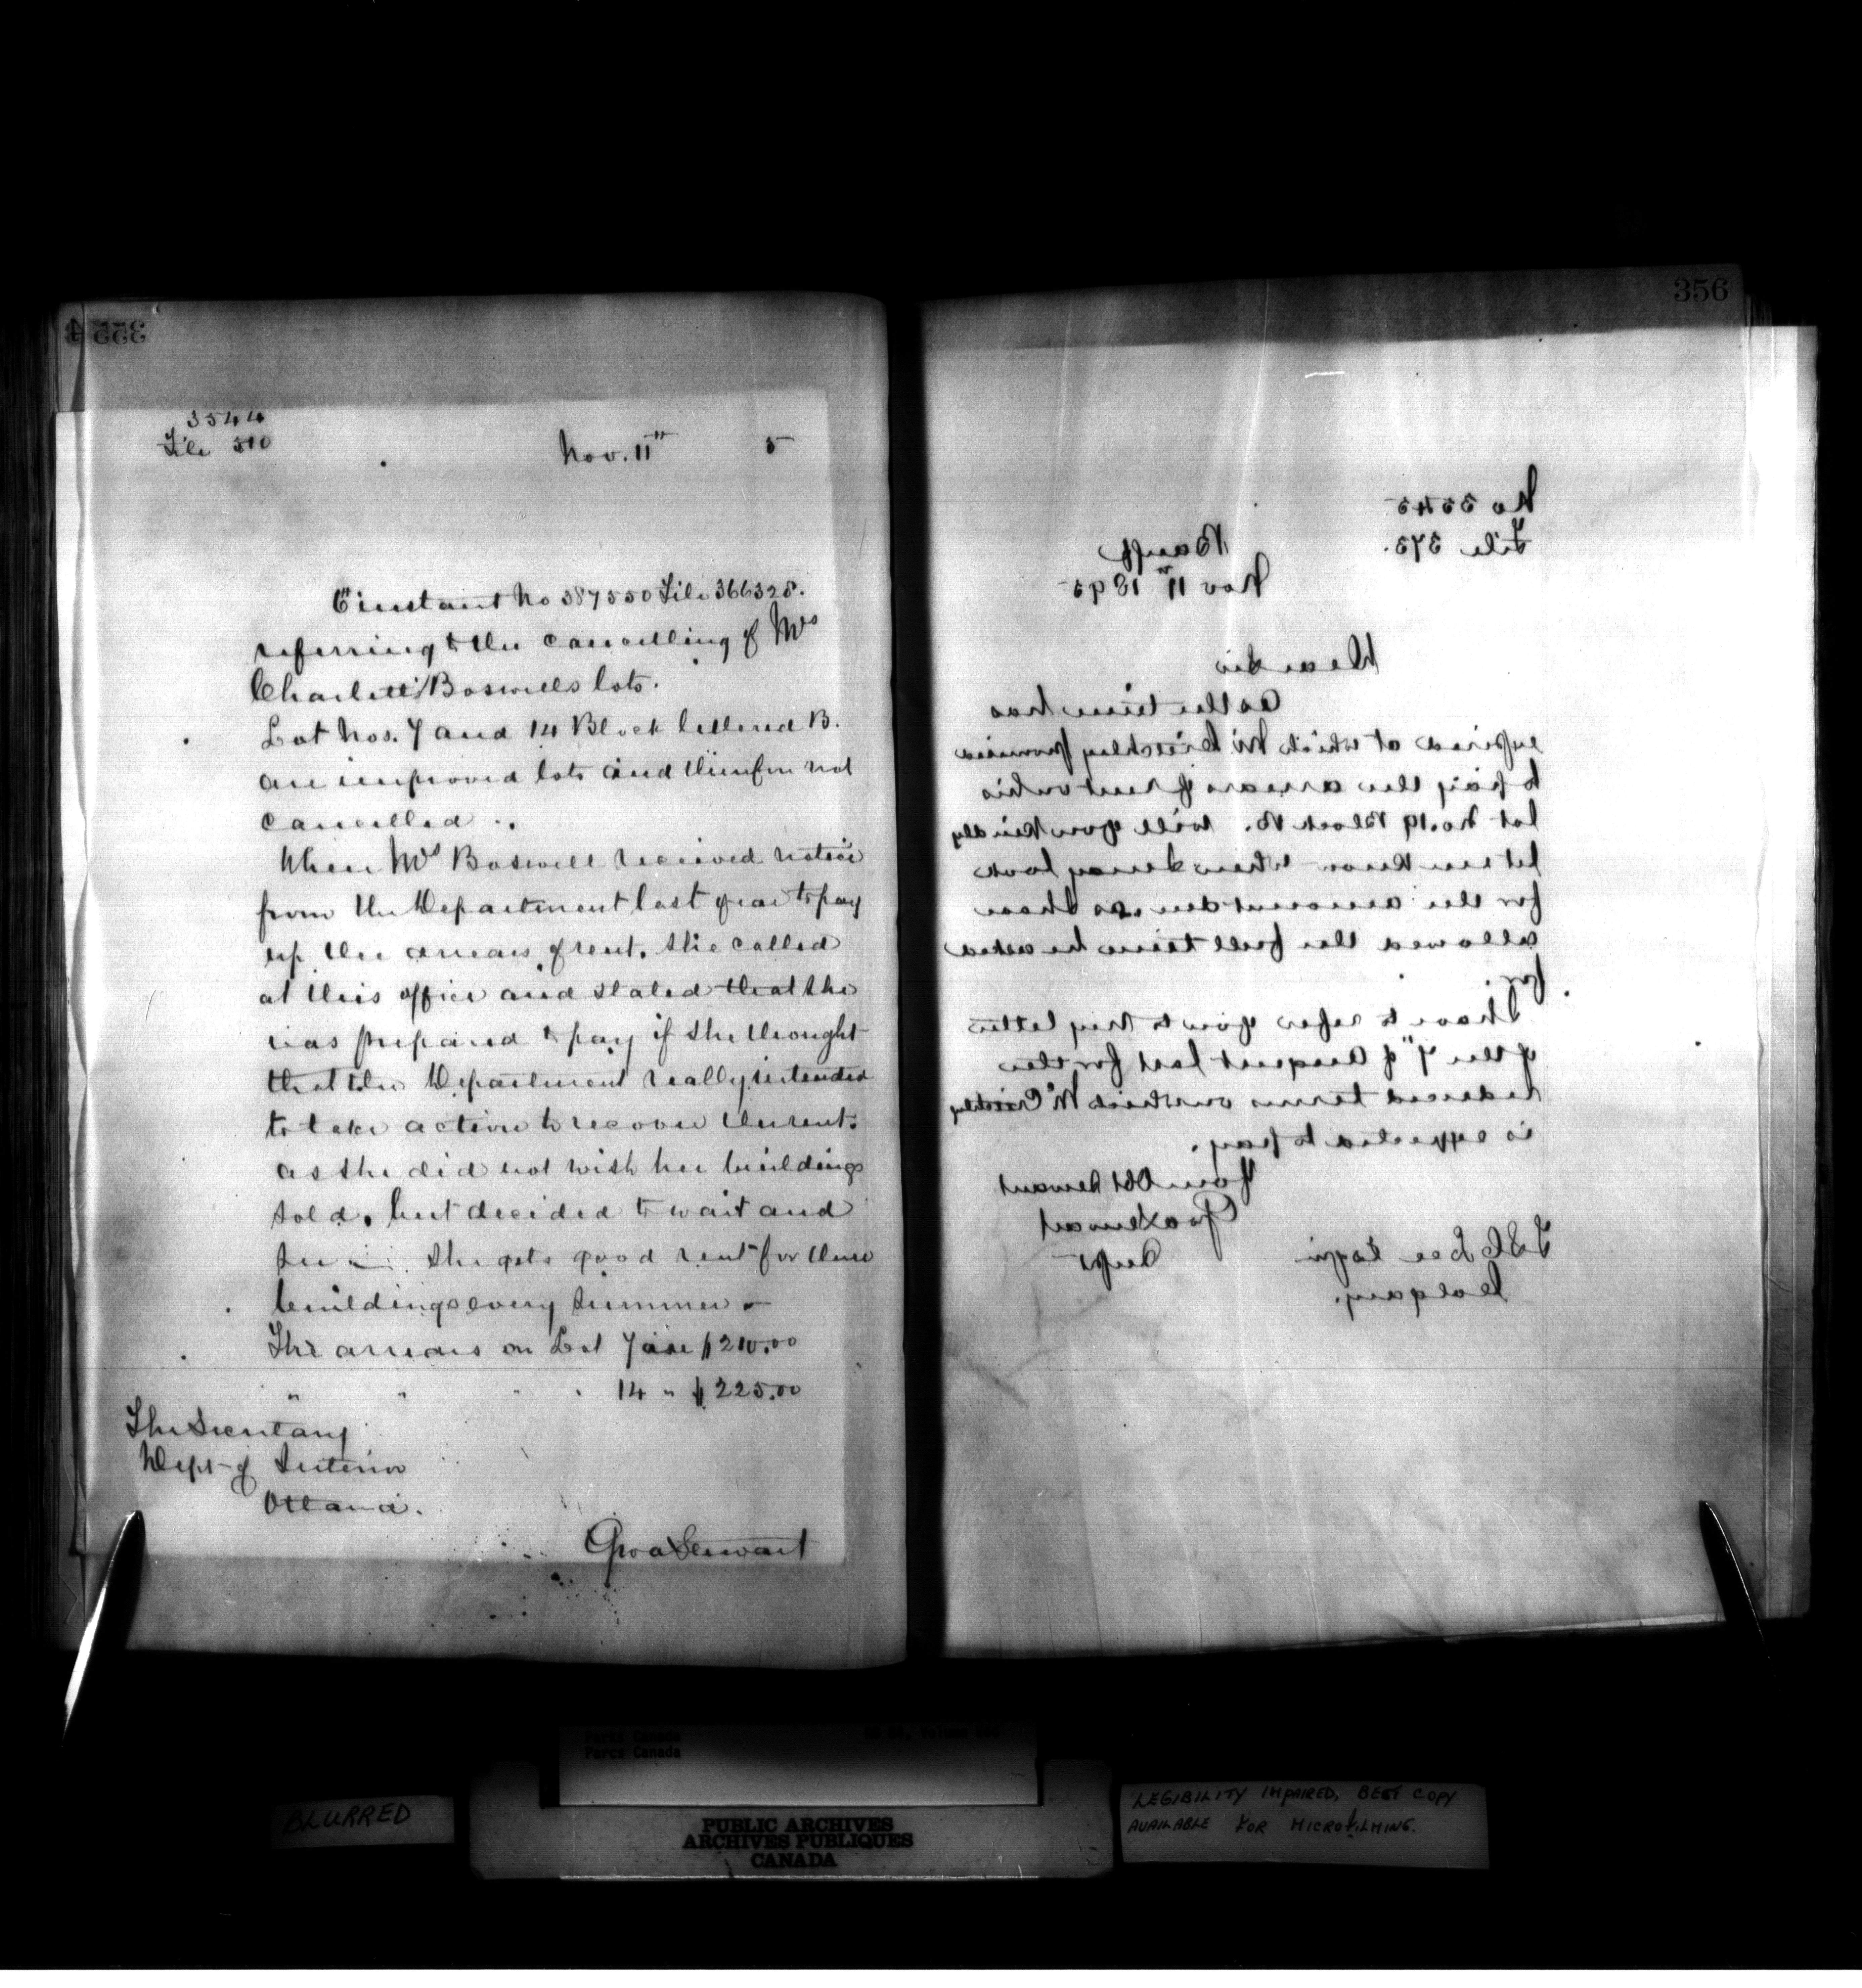 355
3544
File 510
Nov. 11" 5
6" instant No 387550 File 366328.
referring to the cancelling of Mrs
Charlotte Boswells lots.
Lot Nos. 7 and 14 Block lettered B.
are improved lots and therefore not
cancelled.
When Mrs Boswell received notice
from the Department last year to pay
up the arrears of rent. She called
at this office and stated that she
was prepared to pay if she thought
that the Department really intended
to take action to recover the rent.
as she did not wish her buildings
sold. but decided to wait and
see. She gets good rent for these
buildings every summer -
The arrears on Lot 7 are $210.00
" " " " 14 " $225.00
The Secretary
Dept of Interior
Ottawa.
Geo A Stewart
356
No 3545
File 373.
Banff
Nov 11th 1895
Dear Sir
As the time has
expired at which McCritchley promised
to pay the arrears of rent on his
lot No. 19 Block B. will you kindly
let me know when I may look
for the amount due. as I have
allowed the full time he asked
for.
I have to refer you to my letter
of the 7" of August last for the
reduced terms on which McCritchley
is expected to pay.
Your Obt Servant
Geo A Stewart
Supt
Calgary.
Parks Canada
Parcs Canada
BLURRED
PUBLIC ARCHIVES
ARCHIVES PUBLIQUES
CANADA
LEGIBILITY IMPAIRED, BEST COPY
AVAILABLE FOR MICROFILMING.